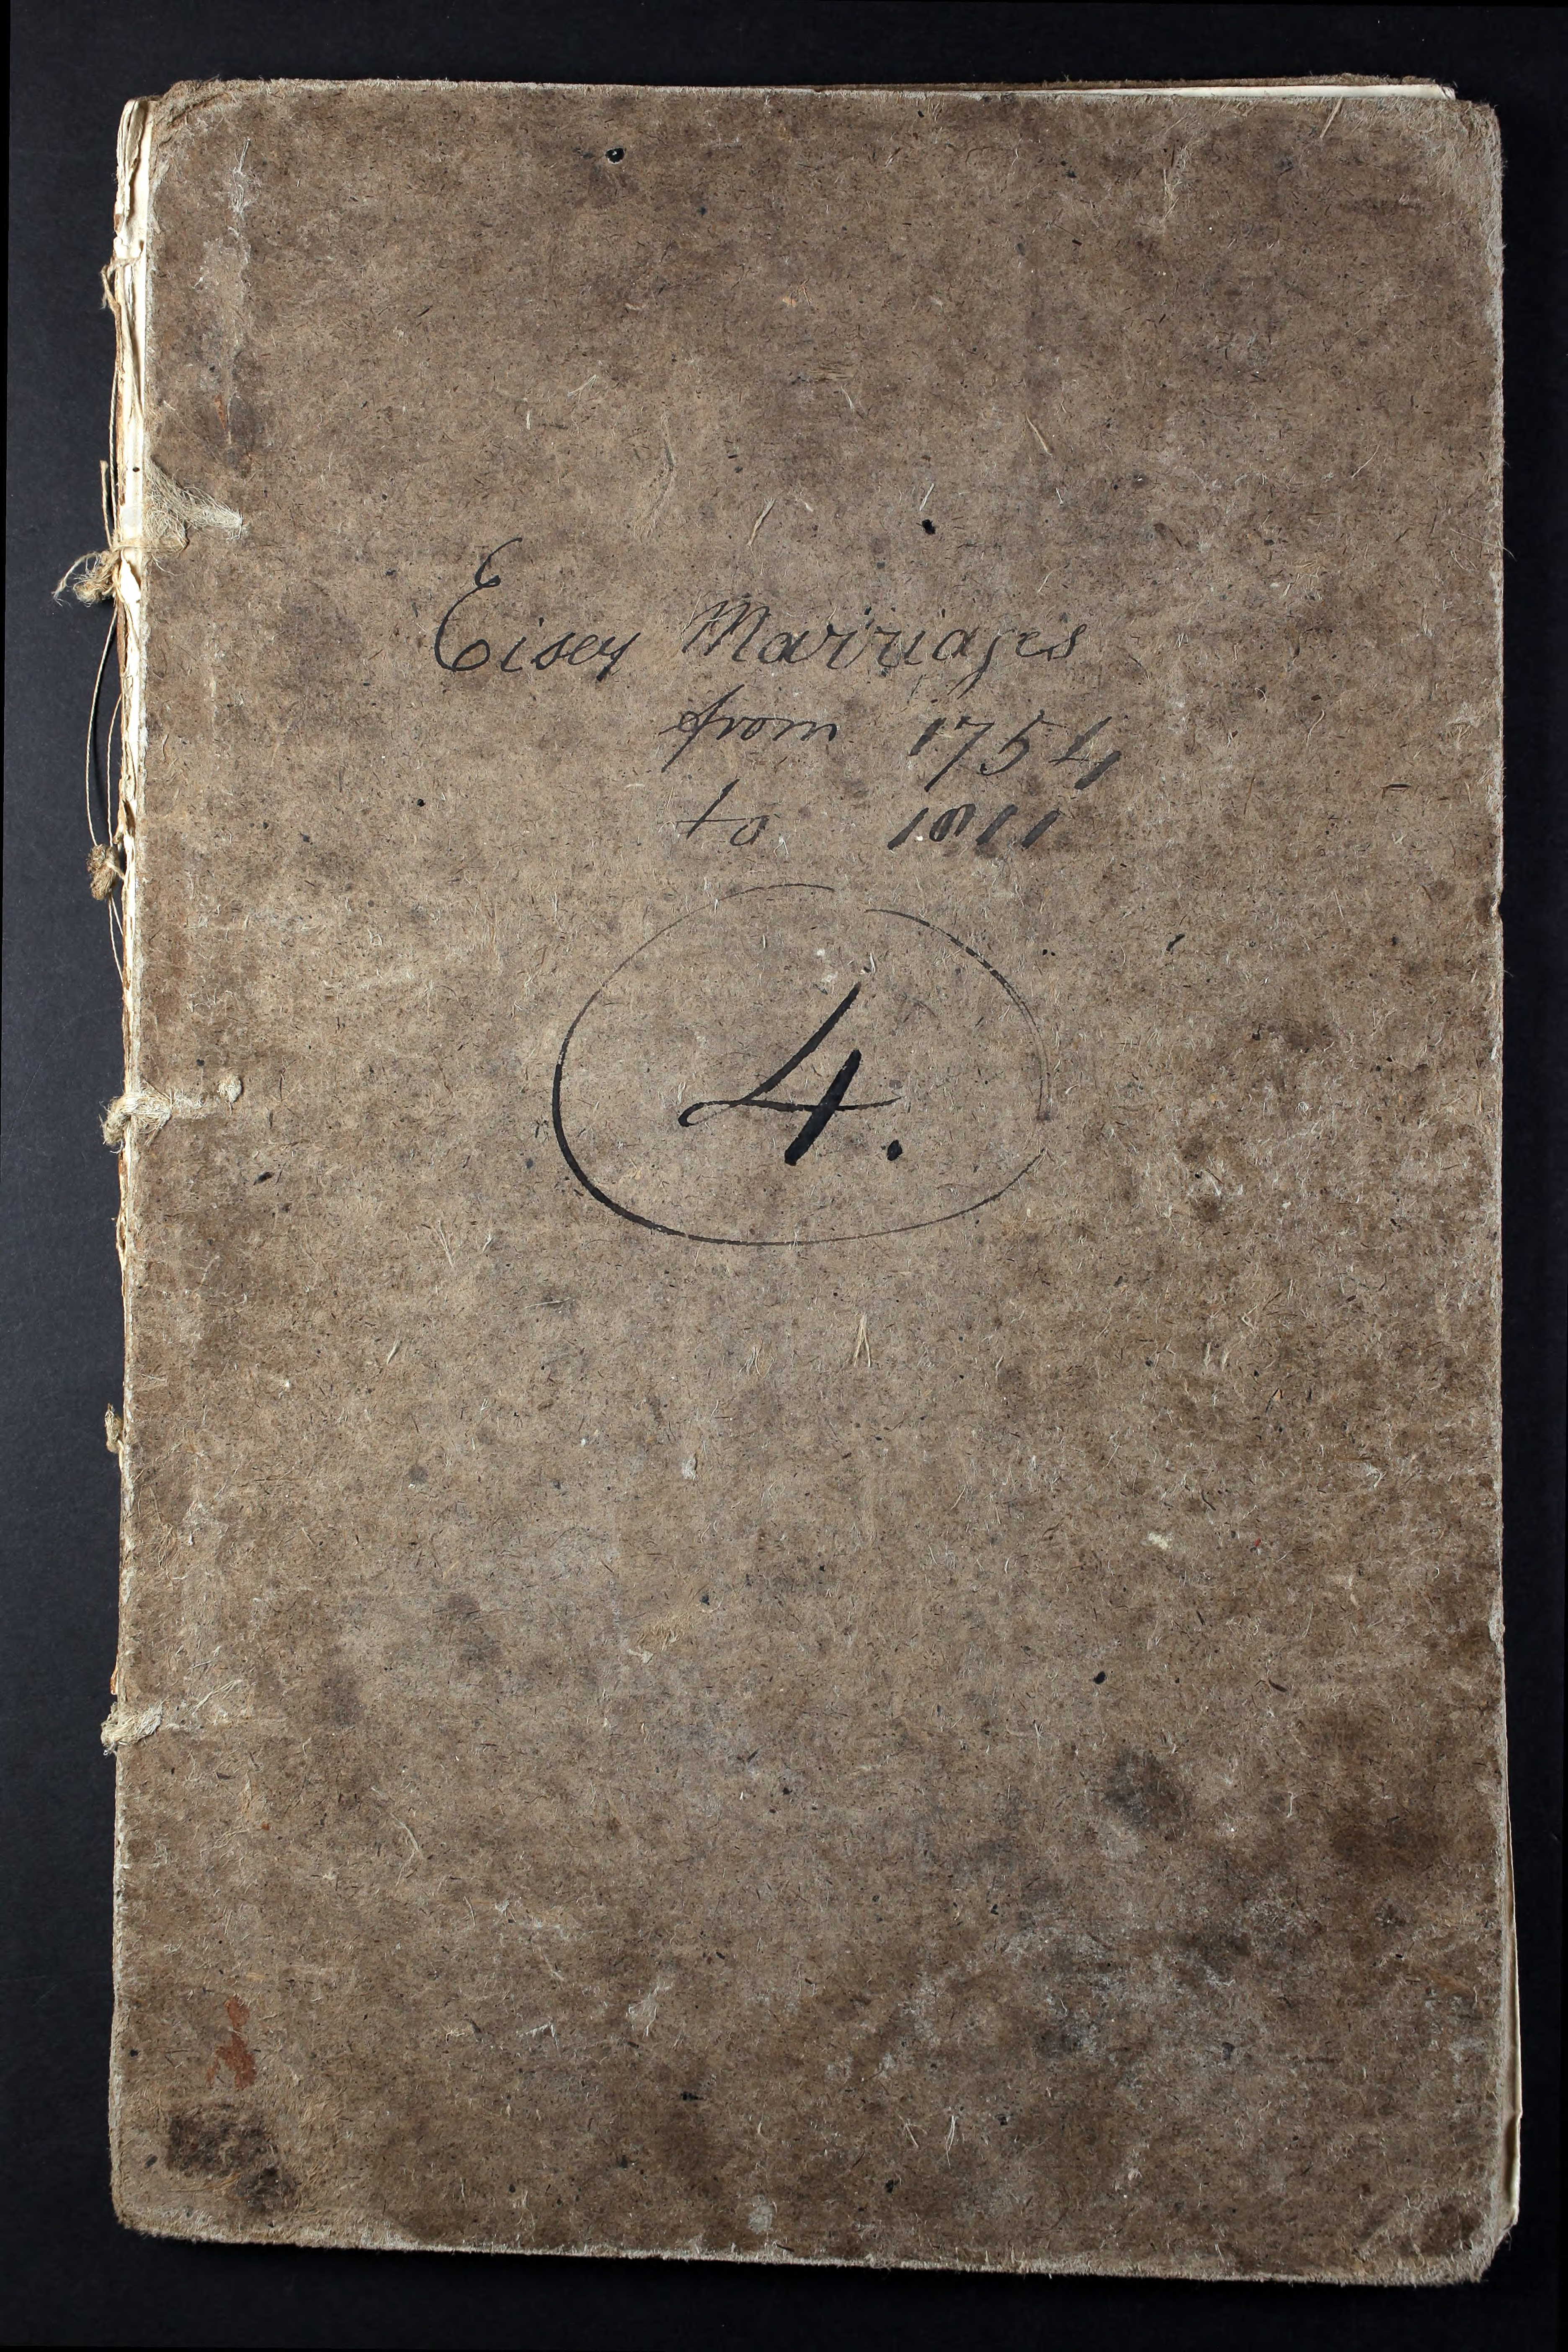 Eisey Marriages
from 1754
to 1811
4.